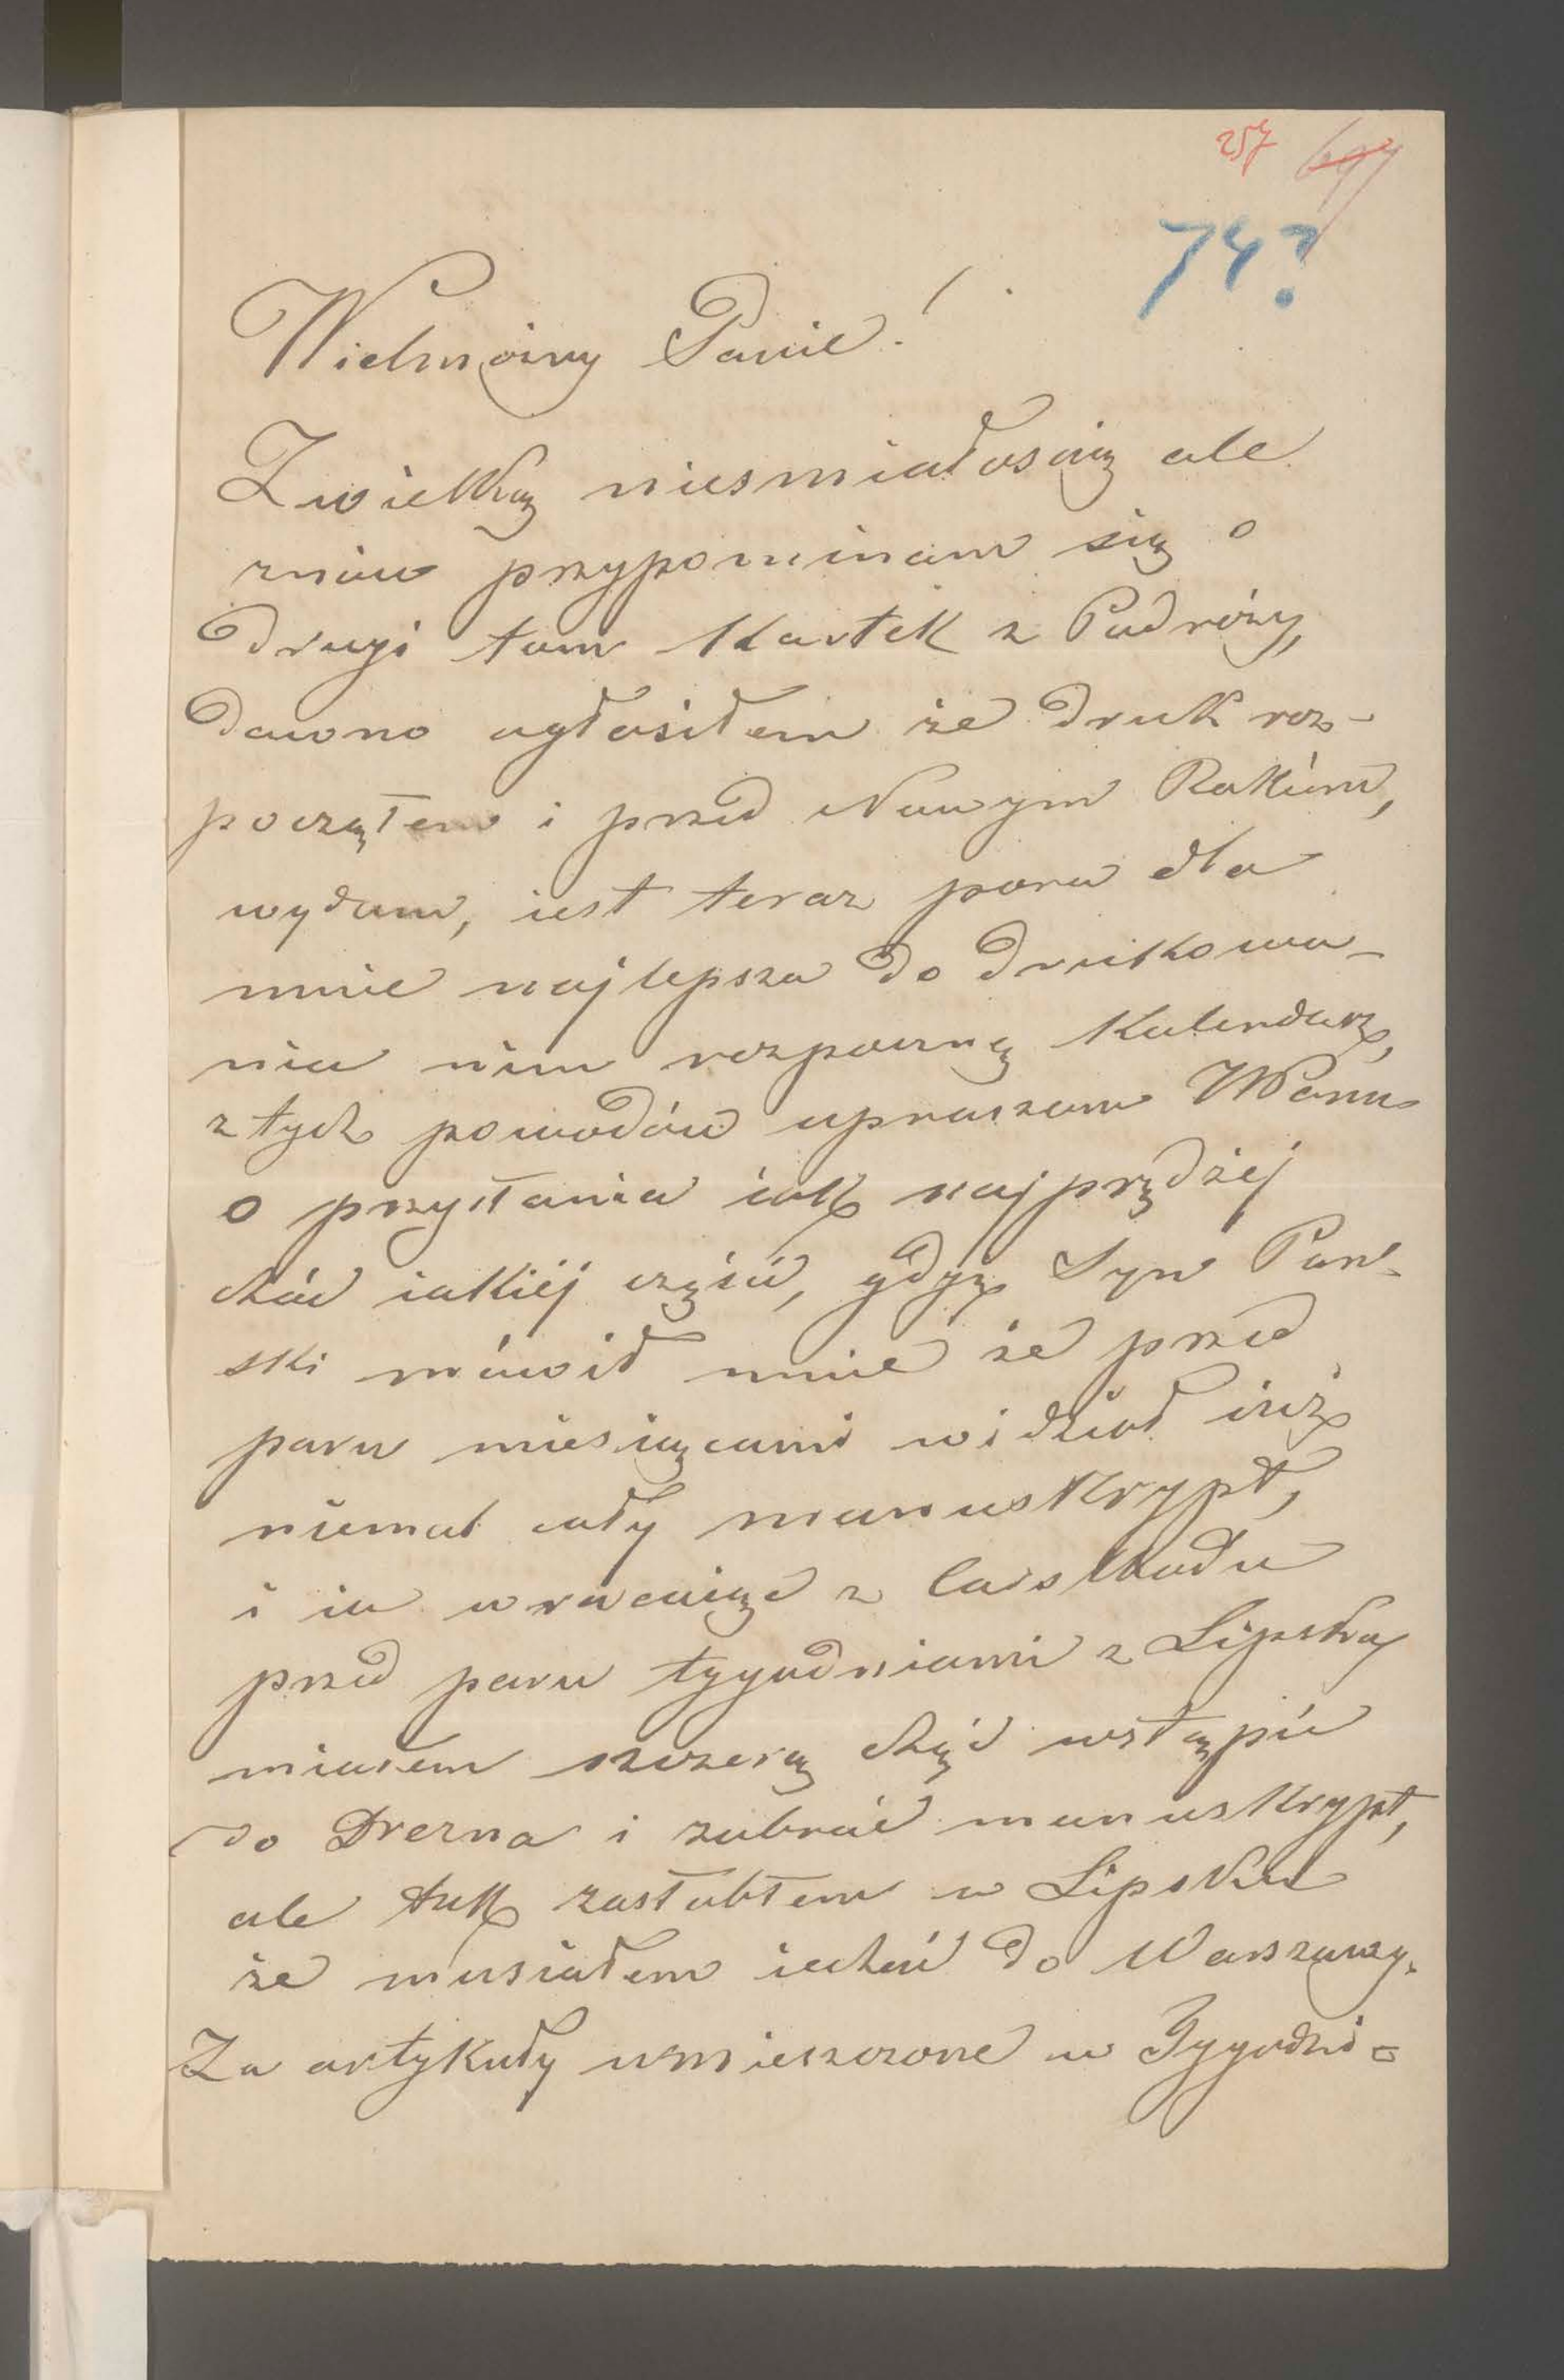 257 697
74?
Wielmożny Panie!
Z wielką niesmiałoscią ale
znów przypominam się o
drugi tom Kartek z Podróży,
dawno ogłosiłem że druk roz-
począłem i przed Nowym Rokiem,
wydam, iest teraz pora dla
mnie najlepsza do drukowa-
nia nim rozpocznę Kalendarz,
z tych powodów upraszam WPana
o przysłania iak najprędzéj
choć iakiéj części, gdyż Syn Pań-
ski mówił mnie że przed
paru miesiącami widział iuż
niemal cały manuskrypt,
i ia wracaiąc z
przed paru tygodniami z Lipska
miałem szczerą chęć wstąpić
do Drezna i zabrać manuskrypt,
ale tak zasłabłem w Lipsku
że musiałem iechać do Warszawy.
Za artykuły umieszczone w Tygodni-